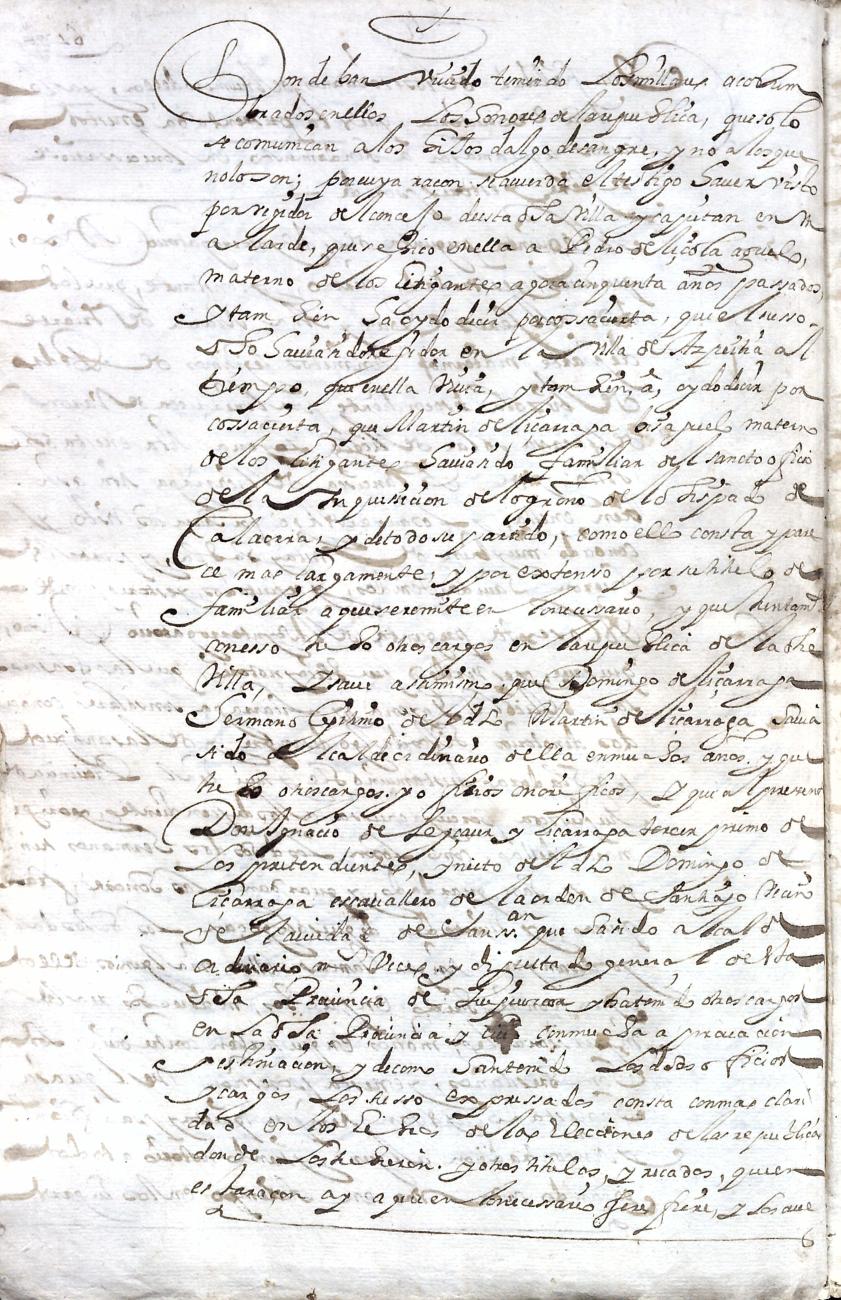 Donde han vivido teniendo Los millares acostum
brados en ellos Los Honores de la republica, que solo
se comunican a los hijos dalgo de sangre, y no a los que
no lo son; por cuya racon se acuerda el testigo haver visto
por regidor del concejo desta dha Villa y capitan en
alarde, que se hico en ella a Pedro de liçola aguelo
materno de los litigantes agora cinquenta años passados,
y tambien ha oydo decir por cossa cierta, que el susso
dho havia sido regidor en la Villa de Azpeitia al
tiempo, que en ella vivia, y tambien, a, oydo decir por
cossa cierta, que Martin de liçarraga bisaguelo materno
de los litigantes havia sido familiar del sancto oficio
de la Inquisicion de logroño del obispado de
Calaorra, y de todo su partido, como ello consta y pare
ce mas largamente, y por extenso por su titulo de
familiar a que se remite en lo necessario, y que
con esso hubo otros cargos en la republica de la dha
Villa, y save assimismo, que Domingo de liçarraga
hermano legitimo del dho Martin de liçarraga havia
sido Alcalde ordinario della en muchos años. y que
hubo otros cargos. y oficios onorificos, y que al presente
Don Ignacio de y liçarraga tercer primo de
Los pretendientes, y nieto del dho Domingo de
liçarraga es cavallero de la orden de Santiago Vecino
de la ciudad de San que ha sido alcalde
ordinario Veces, y diputado general de esta
dha Provincia de Guipuzcoa y ha tenido otros cargos
en La dha Provincia y con mucha aprovacion
y estimacion, y de como han tenido Los dichos oficios
y cargos Los de susso expressados consta con mas clari
dad en los libros de las Elecciones de las republicas
donde Los tubieron. y otros titulos, y recados, que en
esta racon ay a que en lo necessario se refiere, y Los que